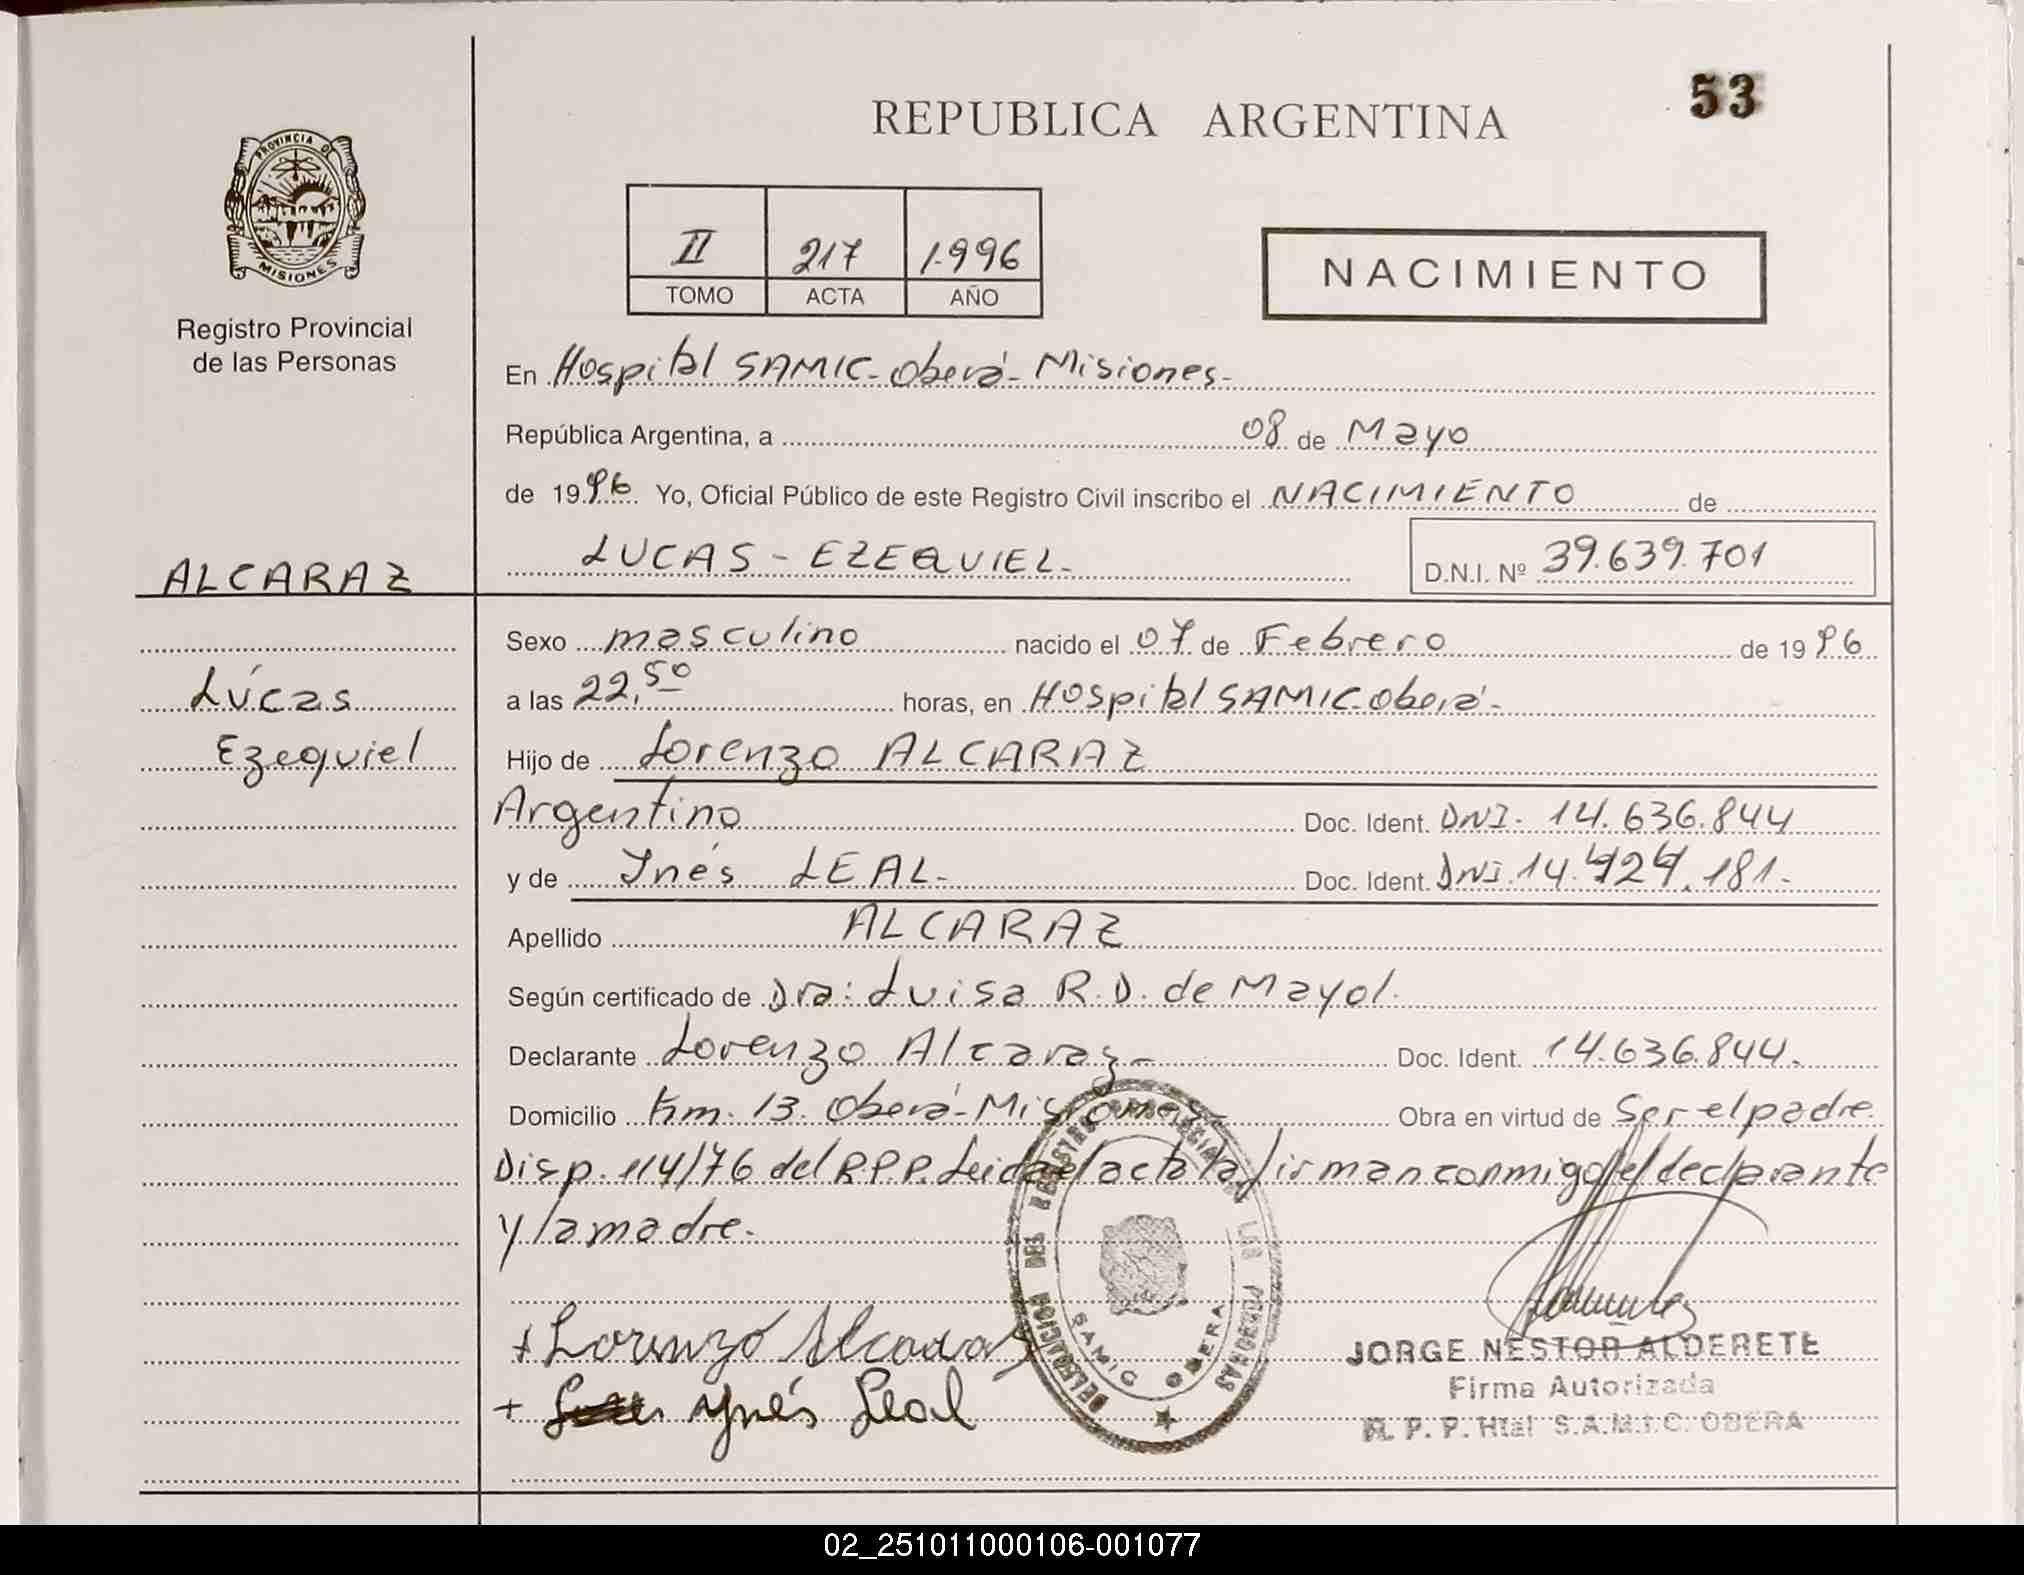 53
REPUBLICA ARGENTINA
PROVINCIA DE
MISIONES
Registro Provincial
de las Personas
II 217 1.996
TOMO ACTA AÑO
NACIMIENTO
En Hospital SAMIC - Oberá - Misiones -
República Argentina, a 08 de Mayo
de 1996 Yo, Oficial Público de este Registro Civil inscribo el NACIMIENTO de
LUCAS - EZEQUIEL -
D.N.I. Nº 39.639.701
ALCARAZ
Lucas
Ezequiel
Sexo masculino nacido el 07 de Febrero de 1996
a las 22,50 horas, en Hospital SAMIC - Oberá -
Hijo de Lorenzo ALCARAZ
Argentino Doc. Ident. DNI. 14.636.844
y de Inés LEAL - Doc. Ident. DNI. 14.424.181 -
Apellido ALCARAZ
Según certificado de Dra: Luisa R. D. de Mayol.
Declarante Lorenzo Alcaraz - Doc. Ident. 14.636.844 -
Domicilio Km. 13. Oberá - Misiones - Obra en virtud de Ser el padre.
Disp. 114/76 del R.P.P. Leida el acta la firman conmigo el declarante
y la madre.
+ Lorenzo Alcaraz
+ Ynés Leal
DELEGACION DEL REGISTRO PROVINCIAL DE LAS PERSONAS
SAMIC OBERA
JORGE NESTOR ALDERETE
Firma Autorizada
R. P. P. Htal S.A.M.I.C. OBERA
02_251011000106-001077